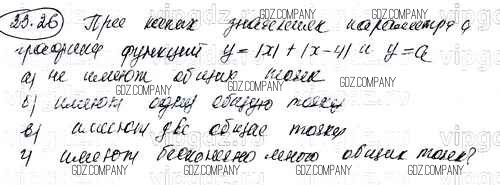 23.26 При каких значениях параметра a
графики функций y = |x| + |x - 4| и y = a
GDZ.COMPANY GDZ.COMPANY GDZ.COMPANY
а) не имеют общих точек
GDZ.COMPANY GDZ.COMPANY GDZ.COMPANY
б) имеют одну общую точку
GDZ.COMPANY GDZ.COMPANY GDZ.COMPANY
в) имеют две общие точки
GDZ.COMPANY GDZ.COMPANY GDZ.COMPANY
г) имеют бесконечно много общих точек?